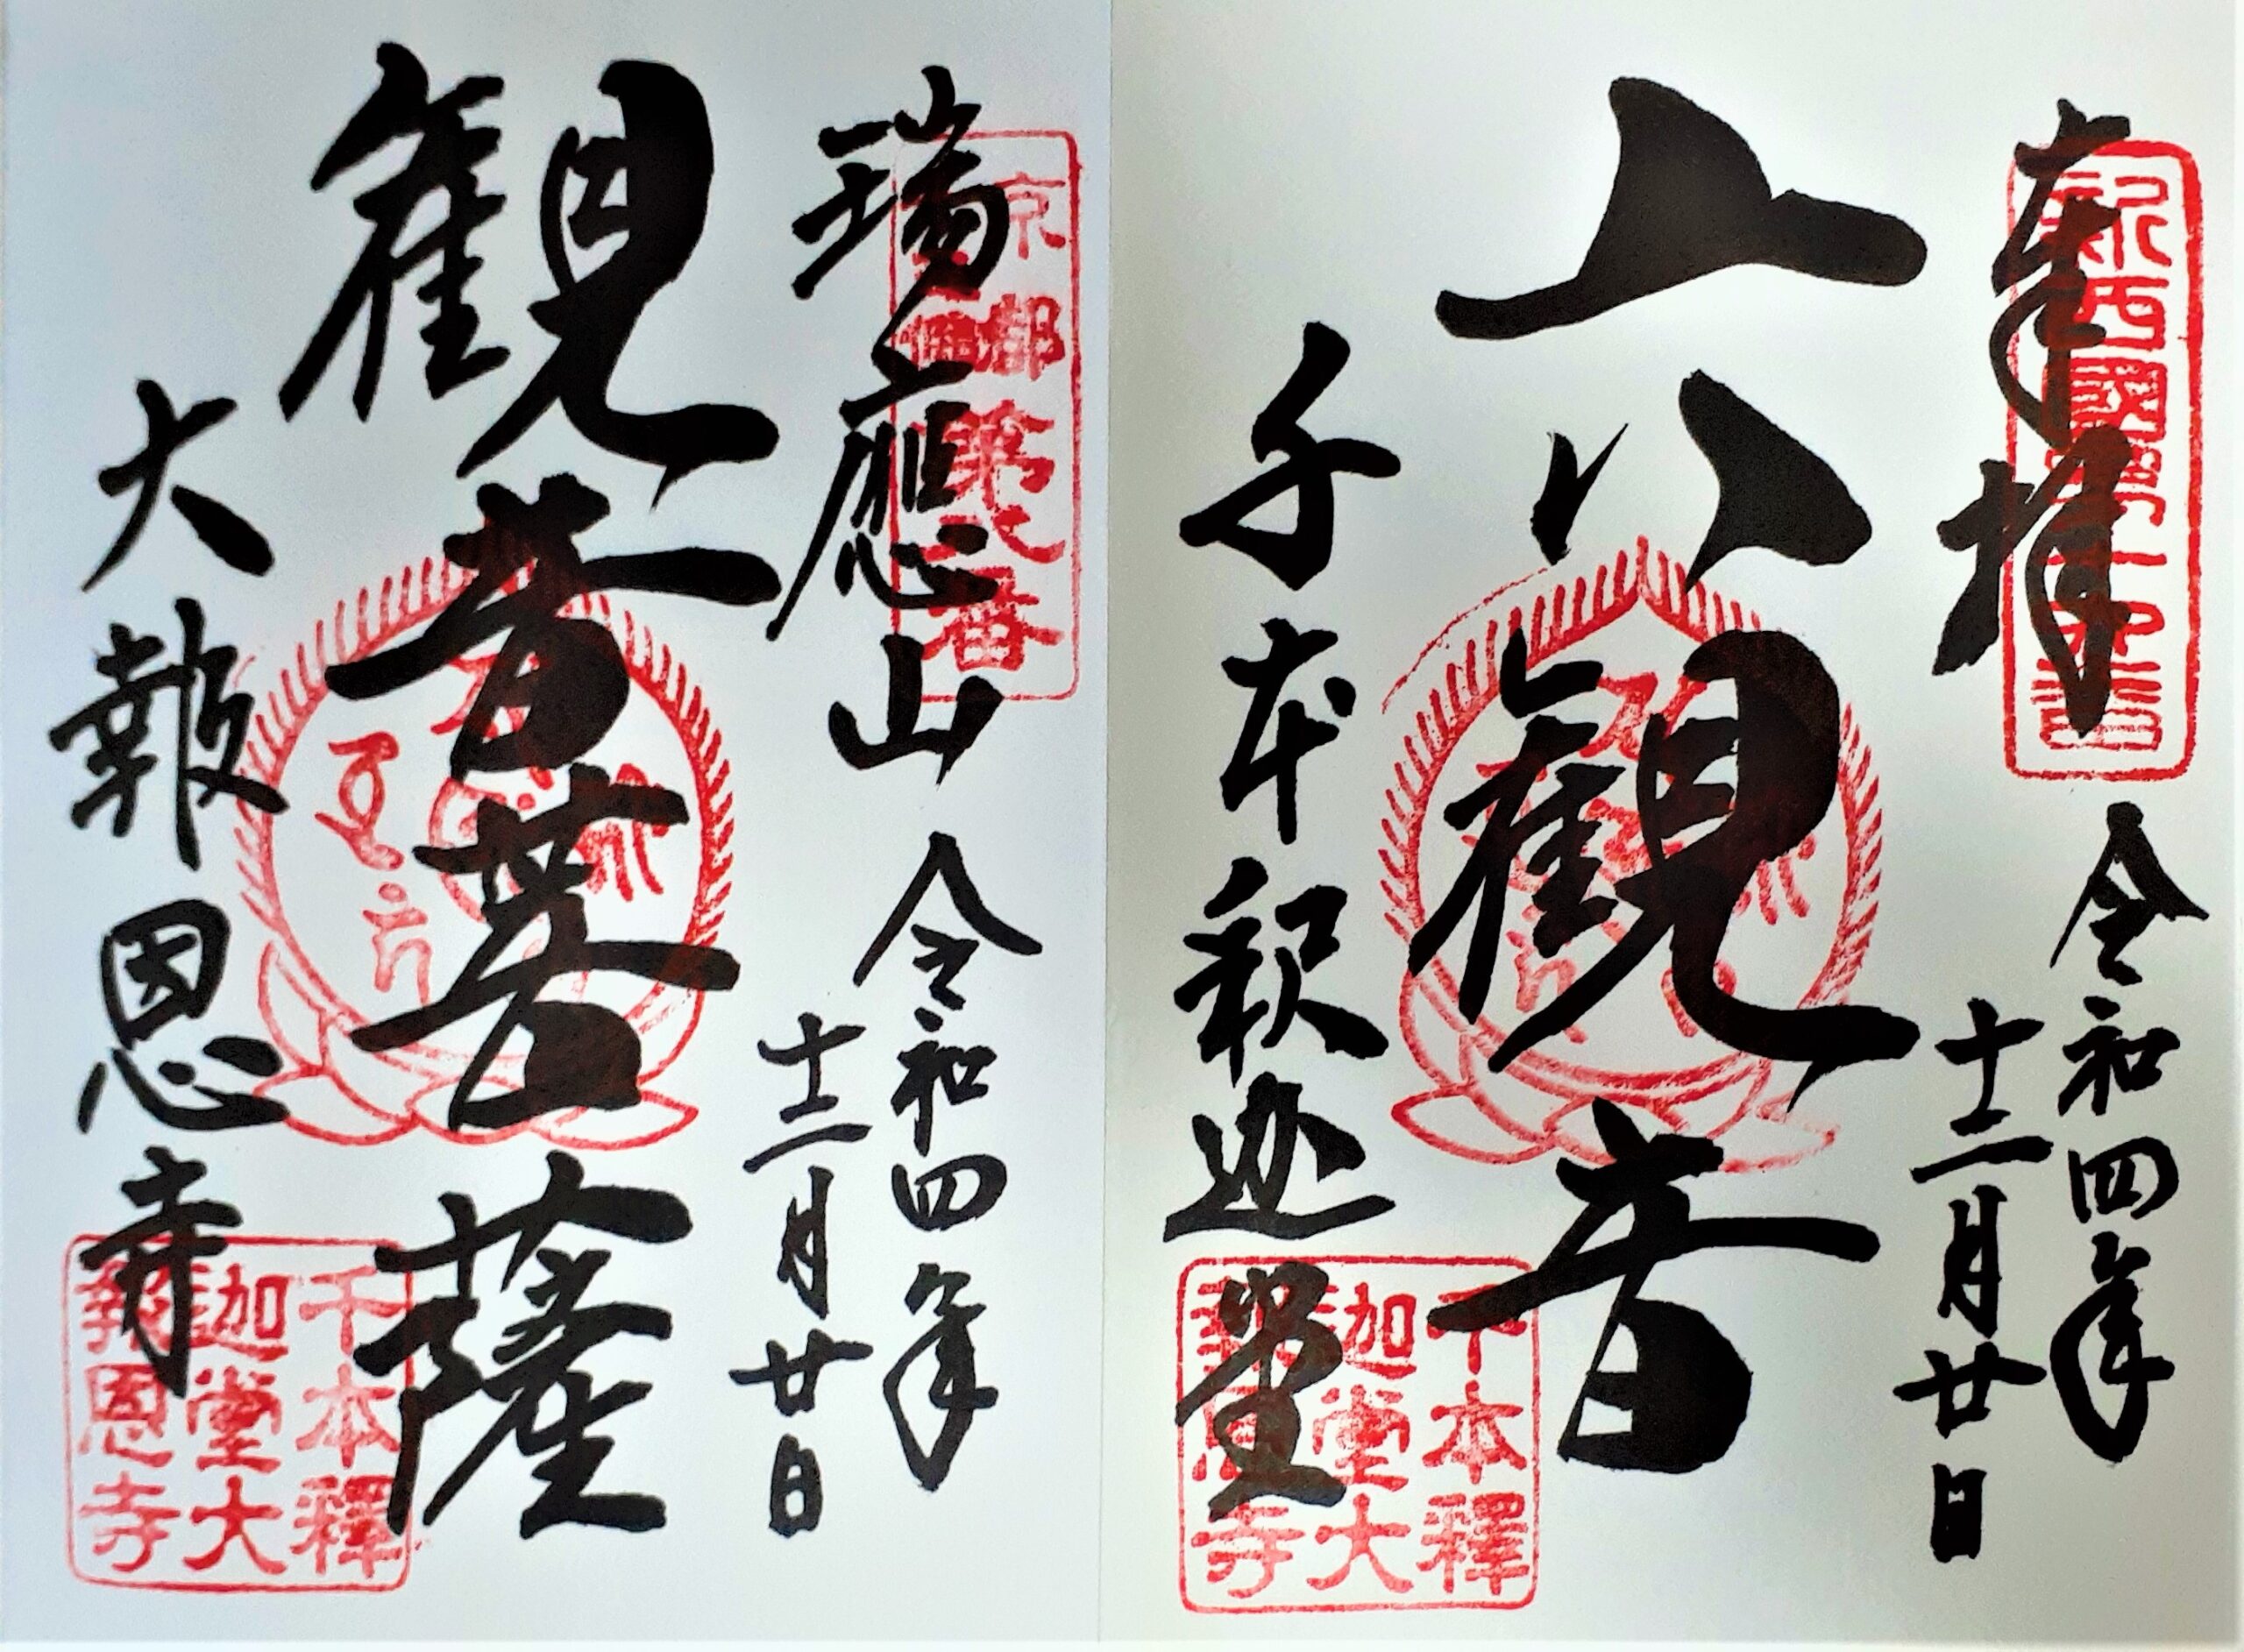 奉拝
令和四年
十二月廿日
六観音
千本釈迦堂
千本釋
迦堂大
報恩寺
瑞應山
令和四年
十二月廿日
観音菩薩
大報恩寺
千本釋
迦堂大
報恩寺